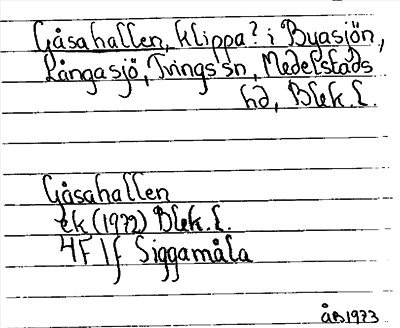 Gåsahallen, klippa? i Byasjön,
Långasjö, Tvings sn, Medelstads
hd, Blek.l.
Gåsahallen
ek (1972) Blek.l.
4F 1f Siggamåla
åB 1973